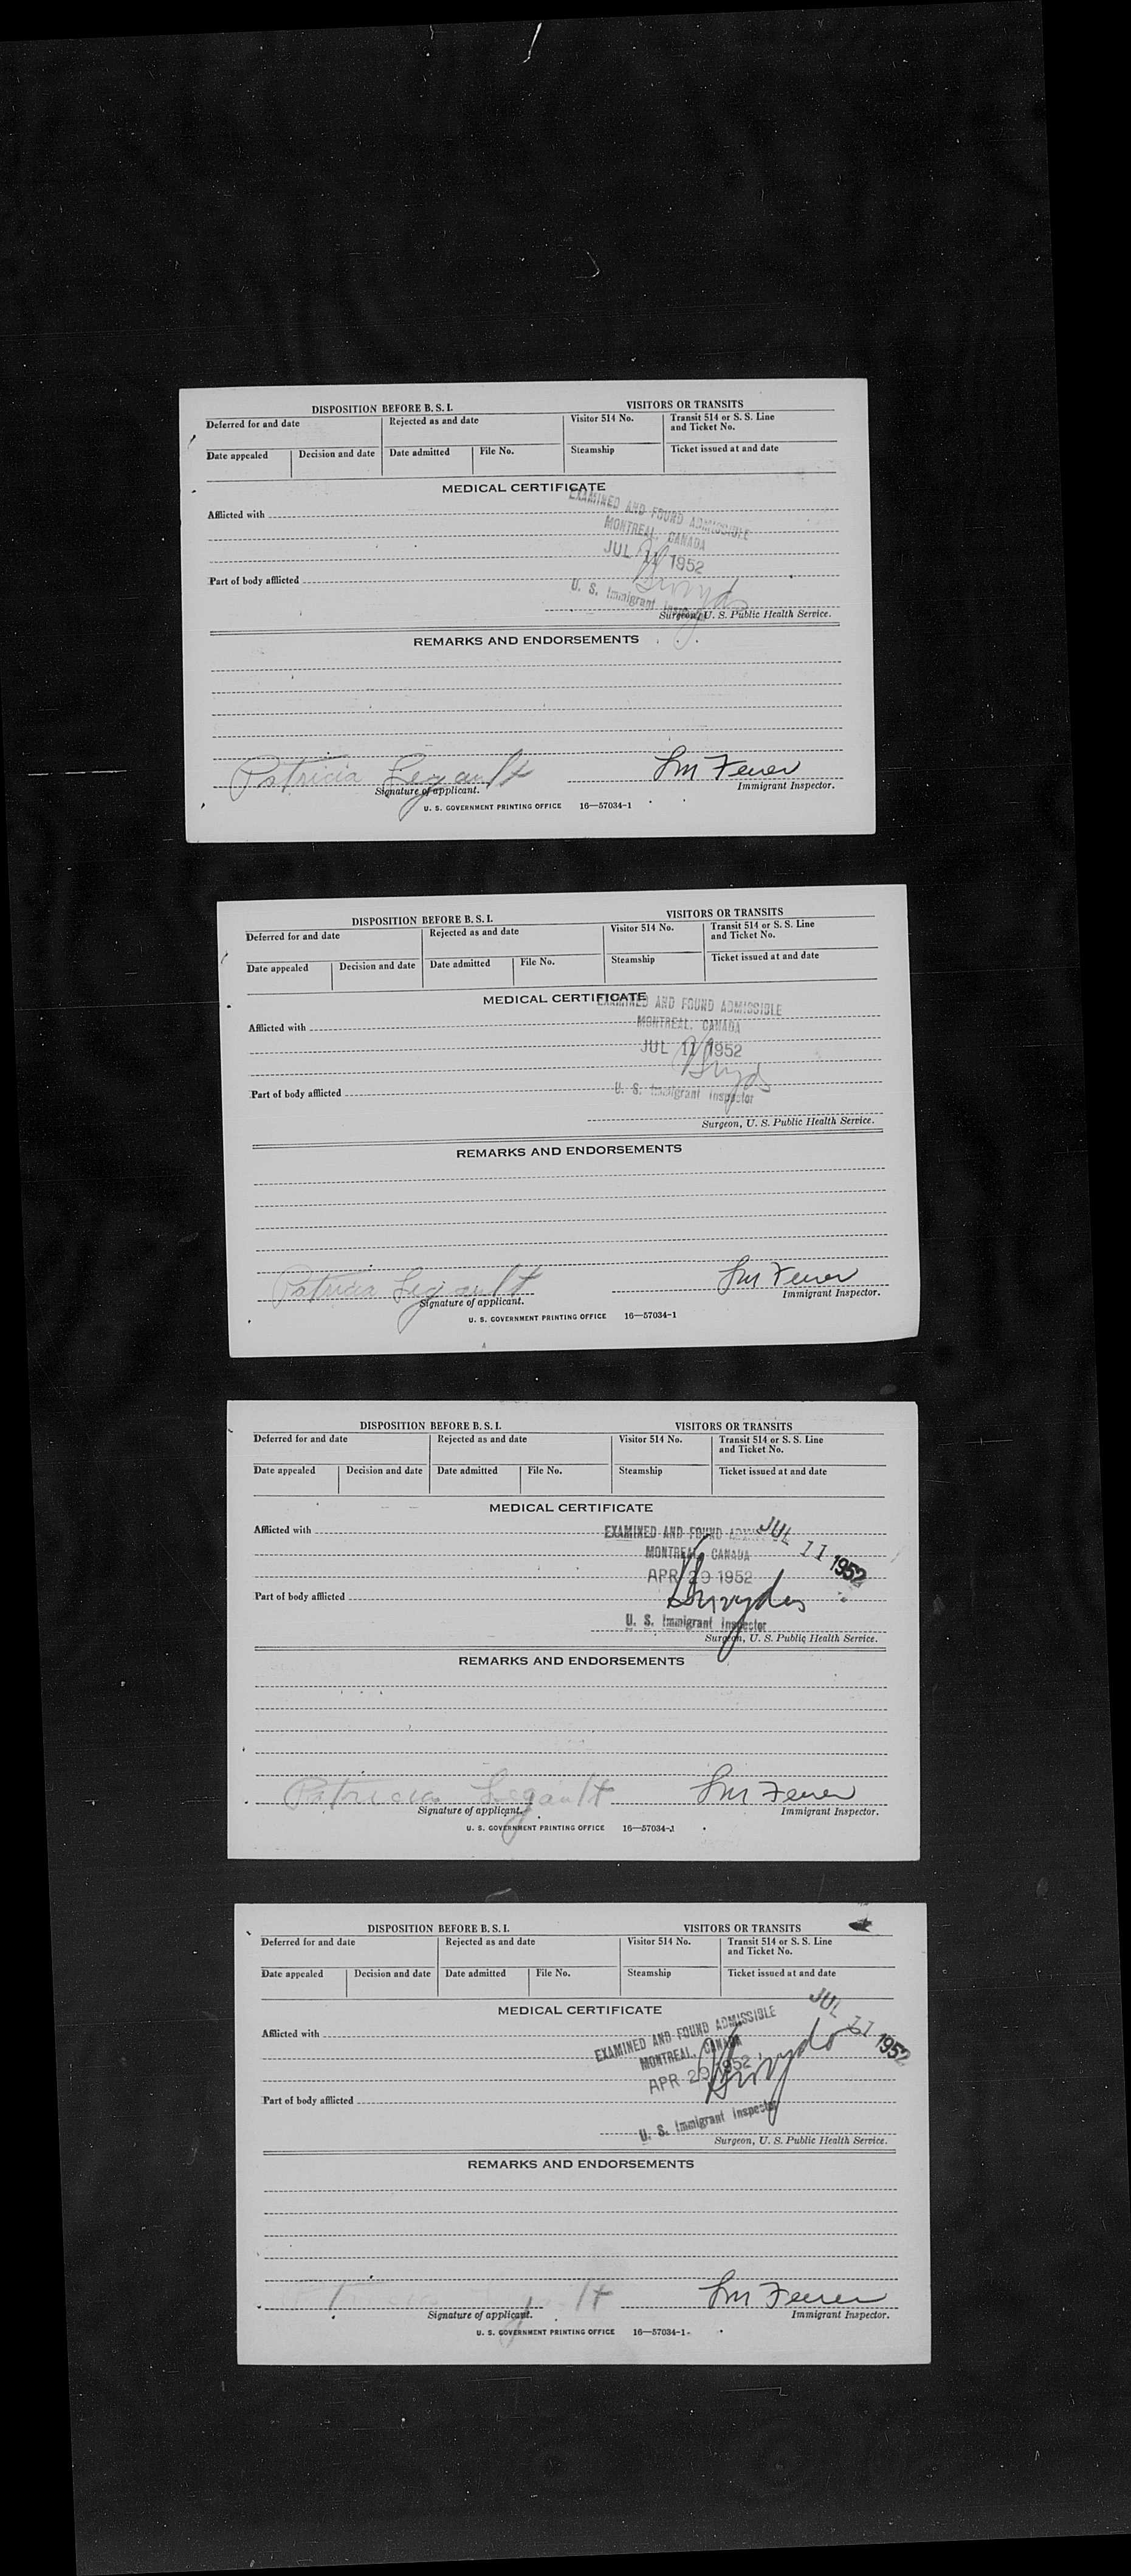 DISPOSITION BEFORE B. S. I. VISITORS OR TRANSITS
Deferred for and date Rejected as and date Visitor 514 No. Transit 514 or S. S. Line and Ticket No.
Date appealed Decision and date Date admitted File No. Steamship Ticket issued at and date
MEDICAL CERTIFICATE
EXAMINED AND FOUND ADMISSIBLE
Afflicted with
MONTREAL, CANADA
JUL 11 1952
Part of body afflicted
U. S. Immigrant Inspector
Surgeon, U. S. Public Health Service.
REMARKS AND ENDORSEMENTS
Patricia Legault
Signature of applicant. Immigrant Inspector.
U. S. GOVERNMENT PRINTING OFFICE 16—57034-1
DISPOSITION BEFORE B. S. I. VISITORS OR TRANSITS
Deferred for and date Rejected as and date Visitor 514 No. Transit 514 or S. S. Line and Ticket No.
Date appealed Decision and date Date admitted File No. Steamship Ticket issued at and date
MEDICAL CERTIFICATE
EXAMINED AND FOUND ADMISSIBLE
Afflicted with
MONTREAL, CANADA
JUL 11 1952
Part of body afflicted
U. S. Immigrant Inspector
Surgeon, U. S. Public Health Service.
REMARKS AND ENDORSEMENTS
Patricia Legault
Signature of applicant. Immigrant Inspector.
U. S. GOVERNMENT PRINTING OFFICE 16—57034-1
DISPOSITION BEFORE B. S. I. VISITORS OR TRANSITS
Deferred for and date Rejected as and date Visitor 514 No. Transit 514 or S. S. Line and Ticket No.
Date appealed Decision and date Date admitted File No. Steamship Ticket issued at and date
MEDICAL CERTIFICATE
Afflicted with
EXAMINED AND FOUND JUL 11 1952
MONTREAL, CANADA
APR 29 1952
Part of body afflicted
U. S. Immigrant Inspector
Surgeon, U. S. Public Health Service.
REMARKS AND ENDORSEMENTS
Patricia Legault
Signature of applicant. Immigrant Inspector.
U. S. GOVERNMENT PRINTING OFFICE 16—57034-1
DISPOSITION BEFORE B. S. I. VISITORS OR TRANSITS
Deferred for and date Rejected as and date Visitor 514 No. Transit 514 or S. S. Line and Ticket No.
Date appealed Decision and date Date admitted File No. Steamship Ticket issued at and date
MEDICAL CERTIFICATE
Afflicted with
EXAMINED AND FOUND ADMISSIBLE JUL 11 1952
MONTREAL, CANADA
APR 29 1952
Part of body afflicted
U. S. Immigrant Inspector
Surgeon, U. S. Public Health Service.
REMARKS AND ENDORSEMENTS
Signature of applicant. Immigrant Inspector.
U. S. GOVERNMENT PRINTING OFFICE 16—57034-1